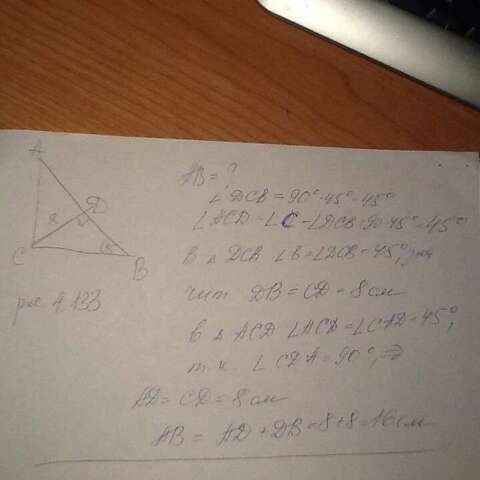 A
D
8
C
45
B
рис 4.133
AB = ?
∠DCB = 90°-45°=45°
∠ACD = ∠C - ∠DCB = 90-45°=45°
В △ DCB ∠B=∠DCB=45°, зна
чит DB = CD = 8 см
В △ ACD ∠ACD = ∠CAD = 45°,
т.к. ∠CDA = 90°, ⇒
AD = CD = 8 см
AB = AD + DB = 8+8 = 16 см